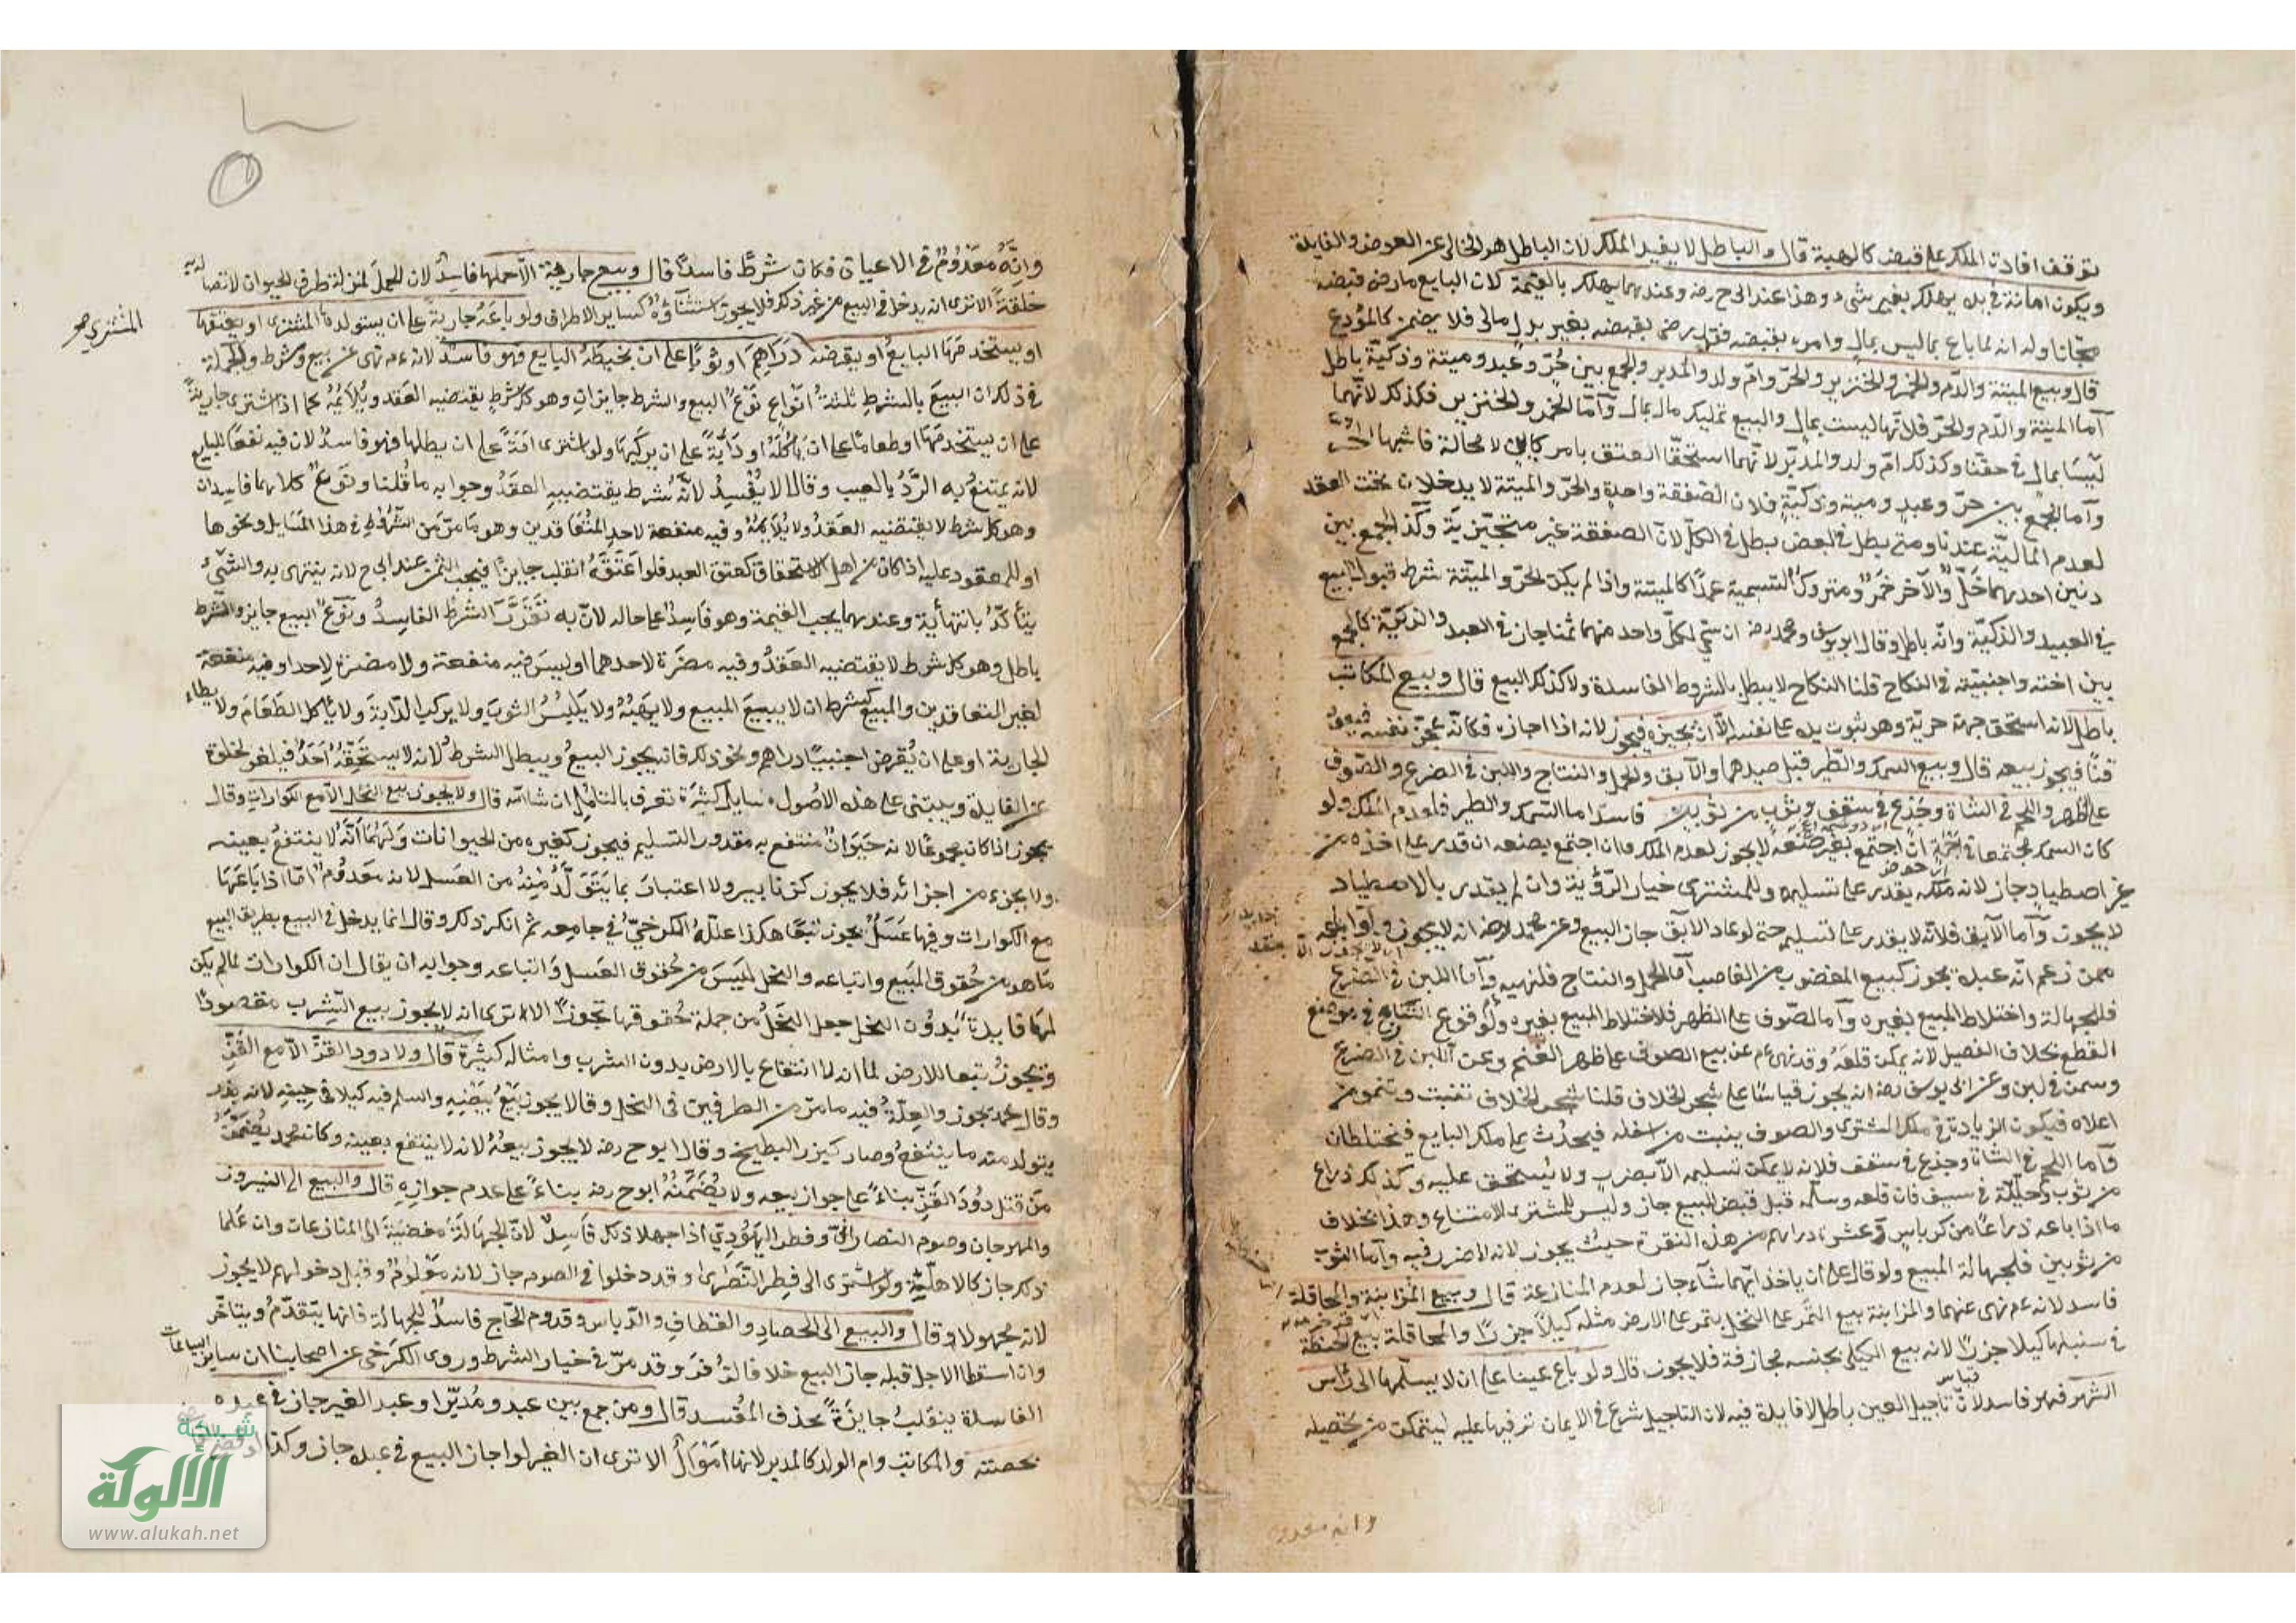 توقف افادة الملك على قبض كالهبة قال والباطل لا يفيد الملك لان الباطل هو الخالى عن العوض والفايدة
ويكون امانة فى يده يهلك بغير شىء وهذا عند ابى ح رضه وعندهما يهلك بالقيمة لان البايع ما رضى قبضه
مجانا وله انه لما باع بما ليس بمال وامره بقبضه فقد رضى بقبضه بغير بدل مالى فلا يضمن كالمودع
قال وبيع الميتة والدم والخمر والخنزير والحر وام ولد والمدبر والجمع بين حُرّ وعبد وميتة وذكيّة باطل
اما الميتة والدم والحر فلانها ليست بمال والبيع تمليك مال بمال وآمّا الخمر والخنزير فكذلك لانّهما
ليسا بمال فى حقنا وكذلك امّ ولد والمدبّر لانهما استحقّا العتق بامر كاين لا محالة فاشبها الحر
وآما الجمع بين حرّ وعبد وميتة وذكيّة فلان الصّفقة واحدة والحرّ والميتة لا يدخلان تحت العقد
لعدم الماليّة عندنا ومتى بطل فى البعض بطل فى الكلّ لانّ الصفقة غير متجزية وكذا الجمع بين
دنين احدهما خَلّ والآخر خَمر ومتروك التسمية عمدًا كالميتة واذا لم يكن الحرّ والميّتة شرط قبول البيع
فى العبيد والذكيّة وانّه باطل وقال ابويوسف ومحمد رضه ان سمّى لكلّ واحد منهما ثمنا جاز فى العبد والذكيّة كالجمع
بين اخته واجنبيّة فى النكاح قلنا النكاح لا يبطل بالشروط الفاسدة ولا كذلك البيع قال وبيع المكاتب
باطل لانه استحق جهة حريّة وهو ثبوت يده على نفسه الّا ان يجيزه فيجوز لانه اذا اجازه فكانّه عجّز نفسه فيعود
قنّا فيجوز بيعه قال وبيع السمك والطّير قبل صيدهما والآبق والحمل والنتاج واللبن فى الضرع والصّوف
على الظهر واللحم فى الشاة وجذع فى سقف وثوب من ثوبين فاسد اما السّمك والطير فلعدم الملك ولو
كان السمك مجتمعا فى اجمة ان اجتمع بغير صنعه لا يجوز لعدم الملك وان اجتمع بصنعه ان قدر على اخذه من
غير اصطياد جاز لانه ملكه يقدر على تسليمه وللمشترى خيار الرّؤية وان لم يقدر بالاصطياد
لا يجوز وآما الآبق فلانّه لا يقدر على تسليمه حتى لو عاد الآبق جاز البيع وعن محمد رضه انه لا يجوز ولو باعه
ممن زعم انّه عبده يجوز كبيع المغصوب من الغاصب آما الحمل والنتاج فلنهيه وآمّا اللبن فى الضرع
فللجهالة واختلاط المبيع بغيره وآما الصّوف على الظهر فلاختلاط المبيع بغيره ولوقوع التنازع فى موضع
القطع بخلاف الفصيل لانه يمكن قلعه وقد نهى ءم عن بيع الصوف على ظهر الغنم وعن اللبن فى الضرع
وسمن فى لبن وعن ابى يوسف رضه انه يجوز قياسًا على شجر الخلاف قلنا شجر الخلاف تنبت وتنمو من
اعلاه فيكون الزيادة فى ملك المشترى والصوف ينبت من اسفله فيحدُث على ملك البايع فيختلطان
وآما اللحم فى الشاة وجذع فى سقف فلانه لا يمكن تسليمه الآ بضرب ولا يُستحق عليه وكذلك ذراع
من ثوب وحلية فى سيف فان قلعه وسلّمه قبل قبض البيع جاز وليس للمشترى الامتناع وهذا بخلاف
ما اذا باعه ذراعًا من كرباس وعشرة دراهم من هذه النقرة حيث يجوز لانه لا ضرر فيه وآما الثوب
من ثوبين فلجهالة المبيع ولو قال على ان ياخذ ايّهما شآء جاز لعدم المنازعة قال وبيع المزابنة والمحاقلة
فاسد لانه ءم نهى عنهما والمزابنة بيع الثّمر على النخل بتمر على الارض مثله كيلًا حزرًا والمحاقلة بيع الحنطة
فى سنبلها كيلا حزرًا لانه بيع الكيلى بجنسه مجازفة فلا يجوز قال ولو باع عينا على ان لا يسلّمها الى رأس
الشهر فهو فاسد لانّ تاجيل العين باطل لا فايدة فيه لان التاجيل شرع فى الاثمان ترفيها عليه ليتمكن من تحصيله
وانه معدوم
وانّه مَعْدُوْمٌ فى الاعيان فكان شرطًا فاسدًا قال وبيع جارية الّا حملها فاسد لان الحمل لمنزلة طرف الحيوان لاتصاله به
خلقةً الا ترى انه يدخل فى البيع من غير ذكر فلا يجوز استثناؤه كساير الاطراف ولو باعَهُ جاريةً على ان يستولدها المشترى او يعتقها
المشترى صح
او يستخدمها البايعُ او يقرضه دَرَاهِمَ او ثوبًا على ان يخيطه البايع فهو فاسد لانه ءم نهى عن بيع وشرط والجملة
فى ذلك ان البيعَ بالشرطِ ثلثةُ انْوَاعٍ نَوْعٌ البيع والشرط جايزان وهو كل شرطٍ يقتضيه العَقد ويُلَائِمُهُ كما اذا اشترى جاريةً
على ان يستخدمَها او طعامًا على ان يأكلَهُ او دَابَّةً على ان يركبَها ولو اشترى امَةً على ان يطأها فهو فاسد لان فيه نفعًا للبايع
لانه يمتنعُ به الرَّدُّ بالعيب وقالا لا يُفْسِدُ لانَّهُ شرط يقتضيهِ العقدُ وجوابه ما قُلنا ونَوعٌ كلاهما فاسدان
وهو كل شرط لا يقتضيه العَقدُ ولا يُلَايِمُهُ وفيه منفعة لاحدِ المُتَعَاقدين وهو مَا مرّ من الشُّرُوْطِ فى هذا المَسَايل ونحوها
او للمعقود عليه اذا كان من اهل الاستحقاق كعتق العبد فلو اَعتَقَهُ انقلب جايزًا فيجب الثمن عند ابى ح لانه ينتهى به والشّىء
يتأكّدُ بانتهائه وعندهما يجب القيمة وهو فَاسِدٌ على حاله لانّ به تَقَرَّرَ الشرطُ الفاسدُ ونَوعٌ البيع جايز والشرط
باطل وهو كل شرط لا يقتضيه العَقدُ وفيه مضرّة لاحدهما او ليسَ فيه منفعة ولا مضرة لاحد او فيه منفعة
لغير المتعاقدين والمبيع كشرط ان لا يبيعَ المبيع ولا يهَبَهُ ولا يَلبسُ الثوبَ ولا يركب الدّابَة ولا يأكل الطَعَامَ ولا يطاء
الجارية او على ان يُقرض اجنبيًا دراهم ونحو ذلك فانه يجوز البيعُ ويبطل الشرطُ لانه لا يستَحِقّهُ اَحَدٌ فيلغو لخلوّه
عن الفايدة ويبتنى على هذه الاصُول مسايل كثيرة تعرف بالتامّل ان شاالله قال ولا يجوز بيع النحل الّا مع الكواراتِ وقال
محمد يجوز اذا كان مجموعًا لانه حَيَوانٌ منتفع به مقدور التسليم فيجوز كغيره من الحيوانات وَلَهُمَا اَنَّهُ لا ينتفعُ بعينه
ولا بجزء من اجزائه فلا يجوز كزنابير ولا اعتبارَ بما يَتَوَلَّدُ مِنْهُ من العَسَل لانه مَعدُومٌ امّا اذا بَاعَهَا
مع الكوارات وفيها عَسَلٌ يجوز تبعًا هكذا علّلهُ الكرخىّ فى جامعه ثم انكر ذلك وقال انما يدخل فى البيع بطريق التبع
مَا هو من حُقوق المَبيع واتباعه والنحل لَيسَ من حُقوق العَسل وَاتباعه وجوابه ان يقال ان الكوارات لما لم يكن
لهَا فايدةٌ بدُوْن النحل جعل النحْلُ من جملة حُقوقها تجوزًا الا ترى انه لا يجوز بيع الشّرب مقصودًا
ويجوزُ تبعا للارض لما انه لا انتفاع بالارض بدون الشرب وامثاله كثيرة قال ولا دود القزّ الآ مع القَزِّ
وقال محمد يجوز والعِلّةُ فيه ما مرّ من الطرفين فى النحل وقالا يجوز بَيْعُ بيضِهِ والسلم فيه كيلا فى حِينِهِ لانه بذر
يتولد منه ما ينتفعُ وصار كبزر البطيخ وقال ابو ح رضه لا يجوز بيعُهُ لانه لا ينتفع بعينه وكان محمد يُضَمِّنُ
مَن قتل دُوْدَ القَزّ بناءً على جواز بيعه ولا يُضَمِّنُهُ ابو ح رضه بناءً على عدم جوازِهِ قال والبيع الى النيروز
والمهرجان وصوم النصارىٰ وفطر اليَهُودِىّ اذا جهلا ذلك فَاسِدٌ لانّ الجهَالَةَ مفضيَةٌ الى المنازعات وان عَلما
ذلك جاز كالاهلّة ولو اشترى الى فِطرِ النَّصَٰرىٰ وقد دخلوا فى الصوم جاز لانه مَعْلُومٌ وقبل دخولهم لا يجوز
لانه مجهولا وقال والبيع الى الحصادِ والقطافِ والدّياس وقدوم الحَاج فاسدٌ للجهالة فانها يتقدّم ويتأخّر
وان اسقطا الاجل قبله جاز البيع خلافا لزُفرَ وقد مرّ فى خيار الشرط وروى الكَرخى عن اصحابنا ان ساير البياعات
الفاسدة ينقلبُ جايزةً بحذف المُفْسد قال ومن جمع بين عبد ومُدَبَّرا وعبد الغير جاز فى عبده
بحصته والمكاتب وام الولد كالمدبر لانها اَمْوَالٌ الا ترى ان الغير لو اجاز البيع فى عبده جاز وكذا
شبكة
الألوكة
www.alukah.net